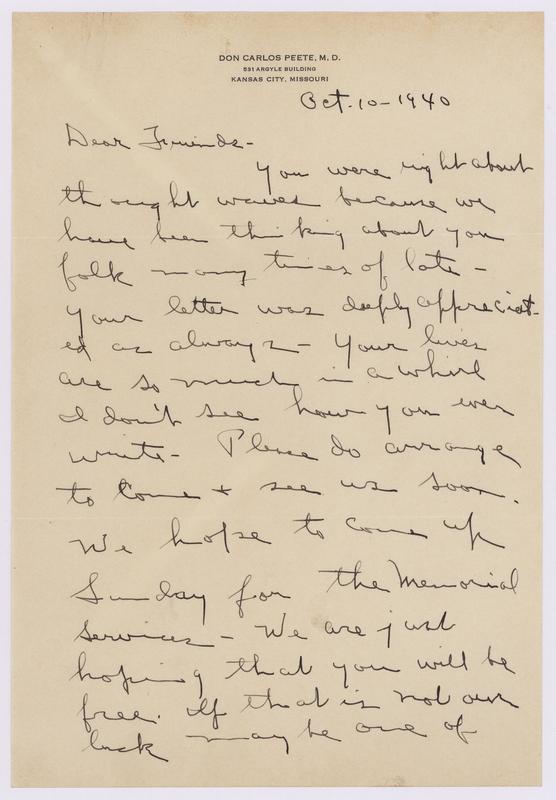 DON CARLOS PEETE, M. D.
531 ARGYLE BUILDING
KANSAS CITY, MISSOURI
Oct. 10 - 1940
Dear Friends -
You were right about
thought waves because we
have been thinking about you
folk many times of late -
Your letter was deeply appreciat-
ed as always - Your lives
are so much in a whirl
I don't see how you ever
write - Please do arrange
to come + see us soon.
We hope to come up
Sunday for the Memorial
Services - We are just
hoping that you will be
free. If that is not our
luck maybe one of